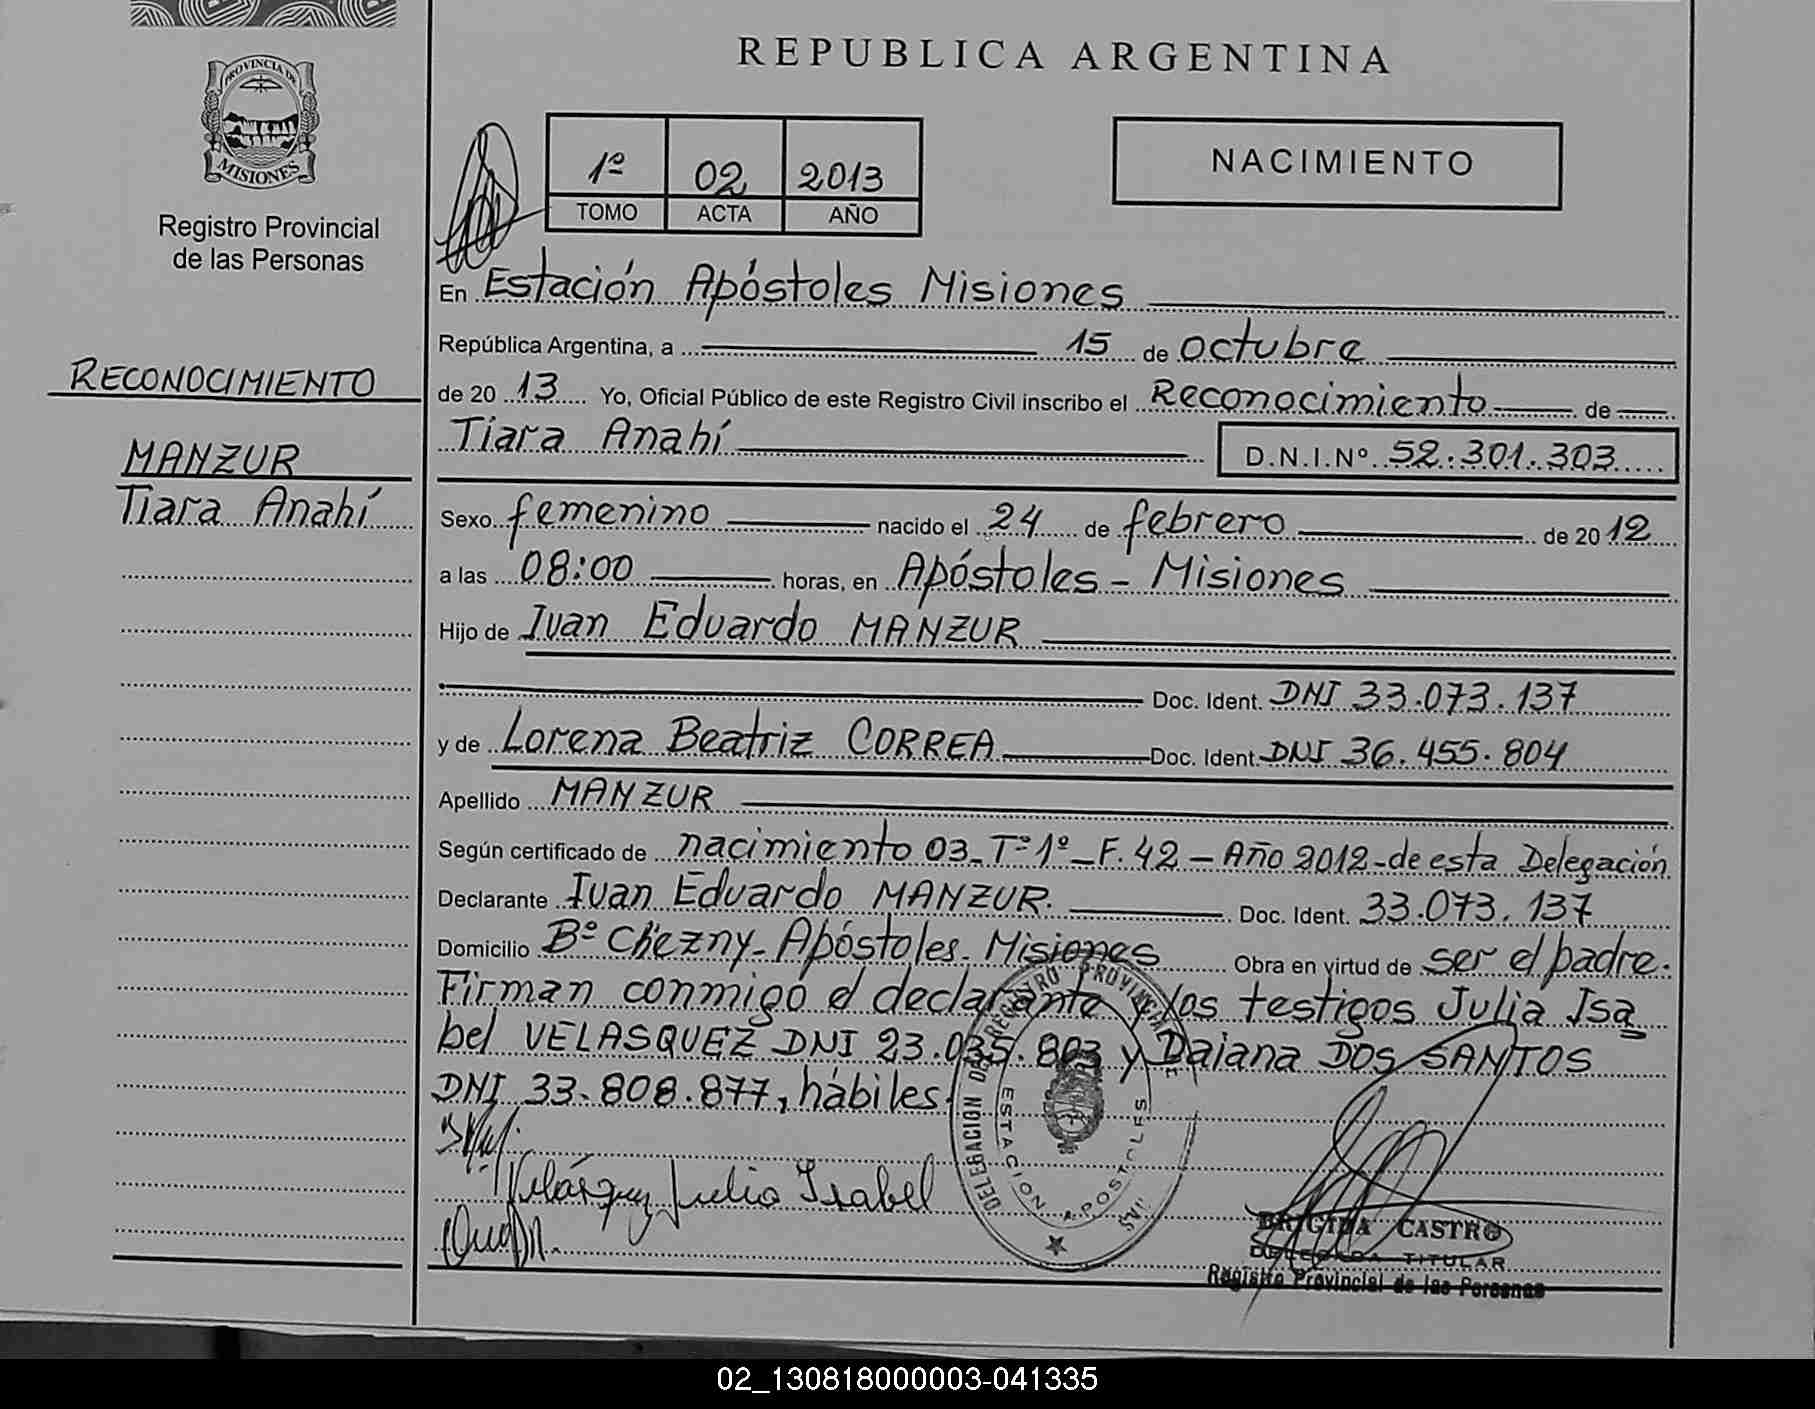 REPUBLICA ARGENTINA
PROVINCIA DE
MISIONES
Registro Provincial
de las Personas
1º 02 2013
TOMO ACTA AÑO
NACIMIENTO
En Estación Apóstoles Misiones
República Argentina, a 15 de octubre
de 2013 Yo, Oficial Público de este Registro Civil inscribo el Reconocimiento de
Tiara Anahí D.N.I.Nº 52.301.303
RECONOCIMIENTO
MANZUR
Tiara Anahí
Sexo femenino nacido el 24 de febrero de 2012
a las 08:00 horas, en Apóstoles - Misiones
Hijo de Ivan Eduardo MANZUR
Doc. Ident. DNI 33.073.137
y de Lorena Beatriz CORREA Doc. Ident. DNI 36.455.804
Apellido MANZUR
Según certificado de nacimiento 03_Tº1º_F.42_Año 2012-de esta Delegación
Declarante Ivan Eduardo MANZUR. Doc. Ident. 33.073.137
Domicilio Bº Chezny-Apóstoles-Misiones Obra en virtud de ser el padre.
Firman conmigo el declarante y los testigos Julia Isa
bel VELASQUEZ DNI 23.035.803 y Daiana DOS SANTOS
DNI 33.808.877, hábiles.
Velázquez Julia Isabel
DELEGACION DE REGISTRO PROVINCIAL
ESTACION APOSTOLES
BRIGIDA CASTRO
DELEGADA TITULAR
Registro Provincial de las Personas
02_130818000003-041335